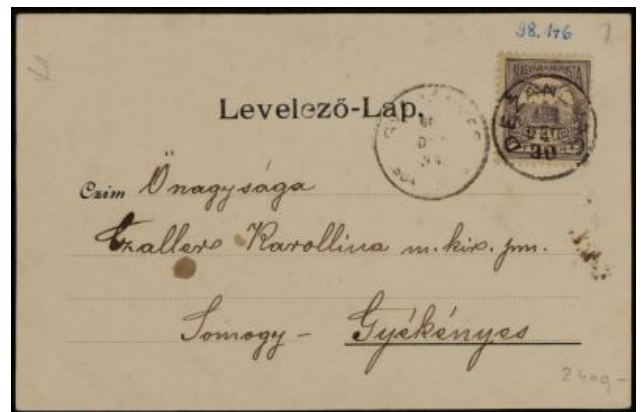 98.146
MAGYAR KIR. POSTA
Levelező-Lap.
Czim Önagysága
Czaller Karollina m. kir. pm.
Somogy - Gyékényes
2400,-